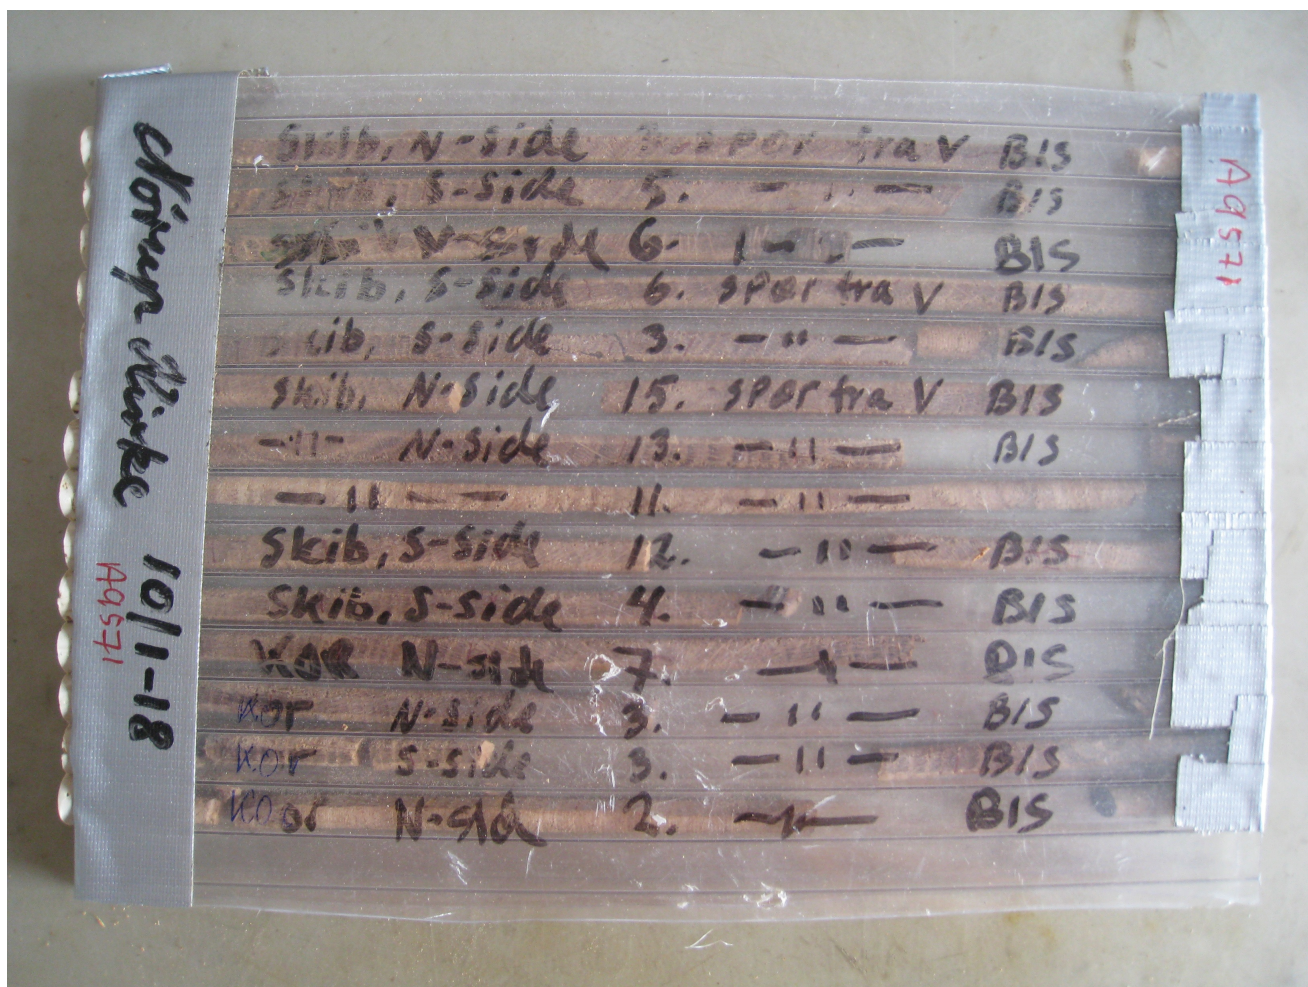 Nörup Kirke 10/1-18
A9571
A9571
Skib, N-side 3. spor fra V B1S
Skib, S-side 5. — " — B1S
Skib V-side 6. — " — B1S
Skib, S-side 6. spor fra V B1S
Skib, S-side 3. — " — B1S
Skib, N-side 15. spor fra V B1S
— " — N-side 13. — " — B1S
— " — 11. — " —
Skib, S-side 12. — " — B1S
Skib, S-side 4. — " — B1S
KOR N-side 7. — " — B1S
Kor N-side 3. — " — B1S
Kor S-side 3. — " — B1S
Kor N-side 2. — " — B1S